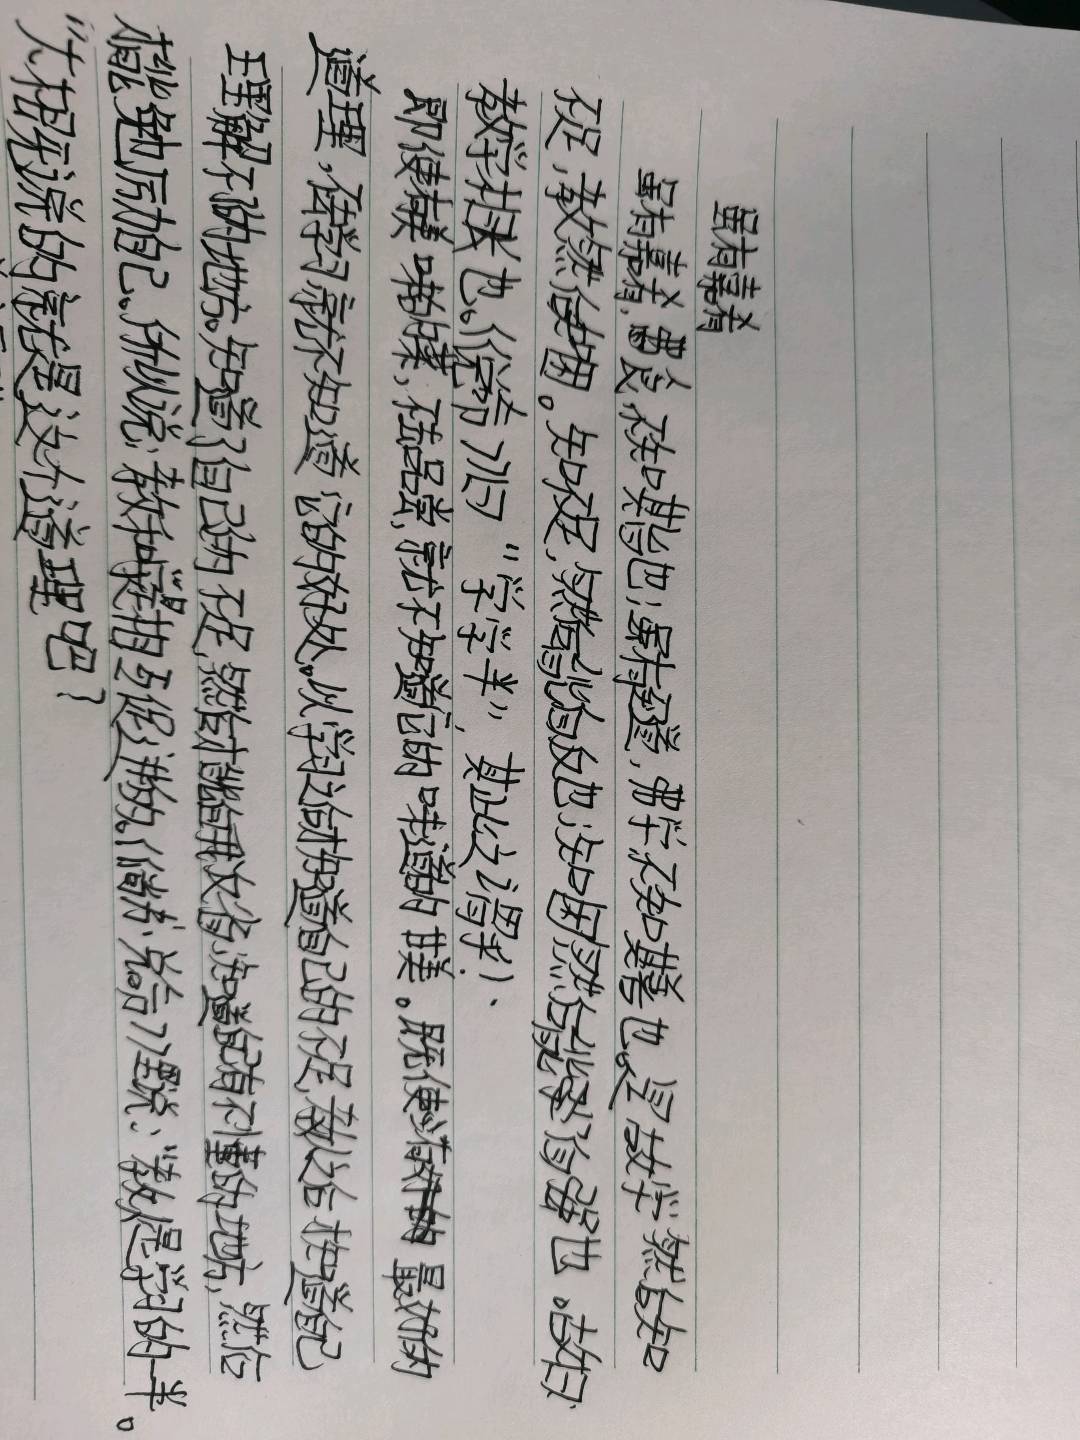 虽有嘉肴
虽有嘉肴,弗食,不知其旨也;虽有至道,弗学,不知其善也。是故学然后知
不足,教然后知困。知不足,然后能自反也;知困,然后能自强也。故曰:
教学相长也。《兑命》曰“学学半”,其此之谓乎!
即使有美味的菜,不去品尝,就不知道它的味道的甘美。既使有 最好的
道理,不去学习,就不知道它的好处。所以学习之后才知道自己的不足,教人之后才知道自己
理解不了的地方。知道了自己的不足,然后才能自我反省;知道自己有不懂的地方,然后
才能勉励自己。所以说:教和学是相互促进的。《尚书·兑命》里说:“教人是学习的一半。
”大概说的就是这个道理吧?